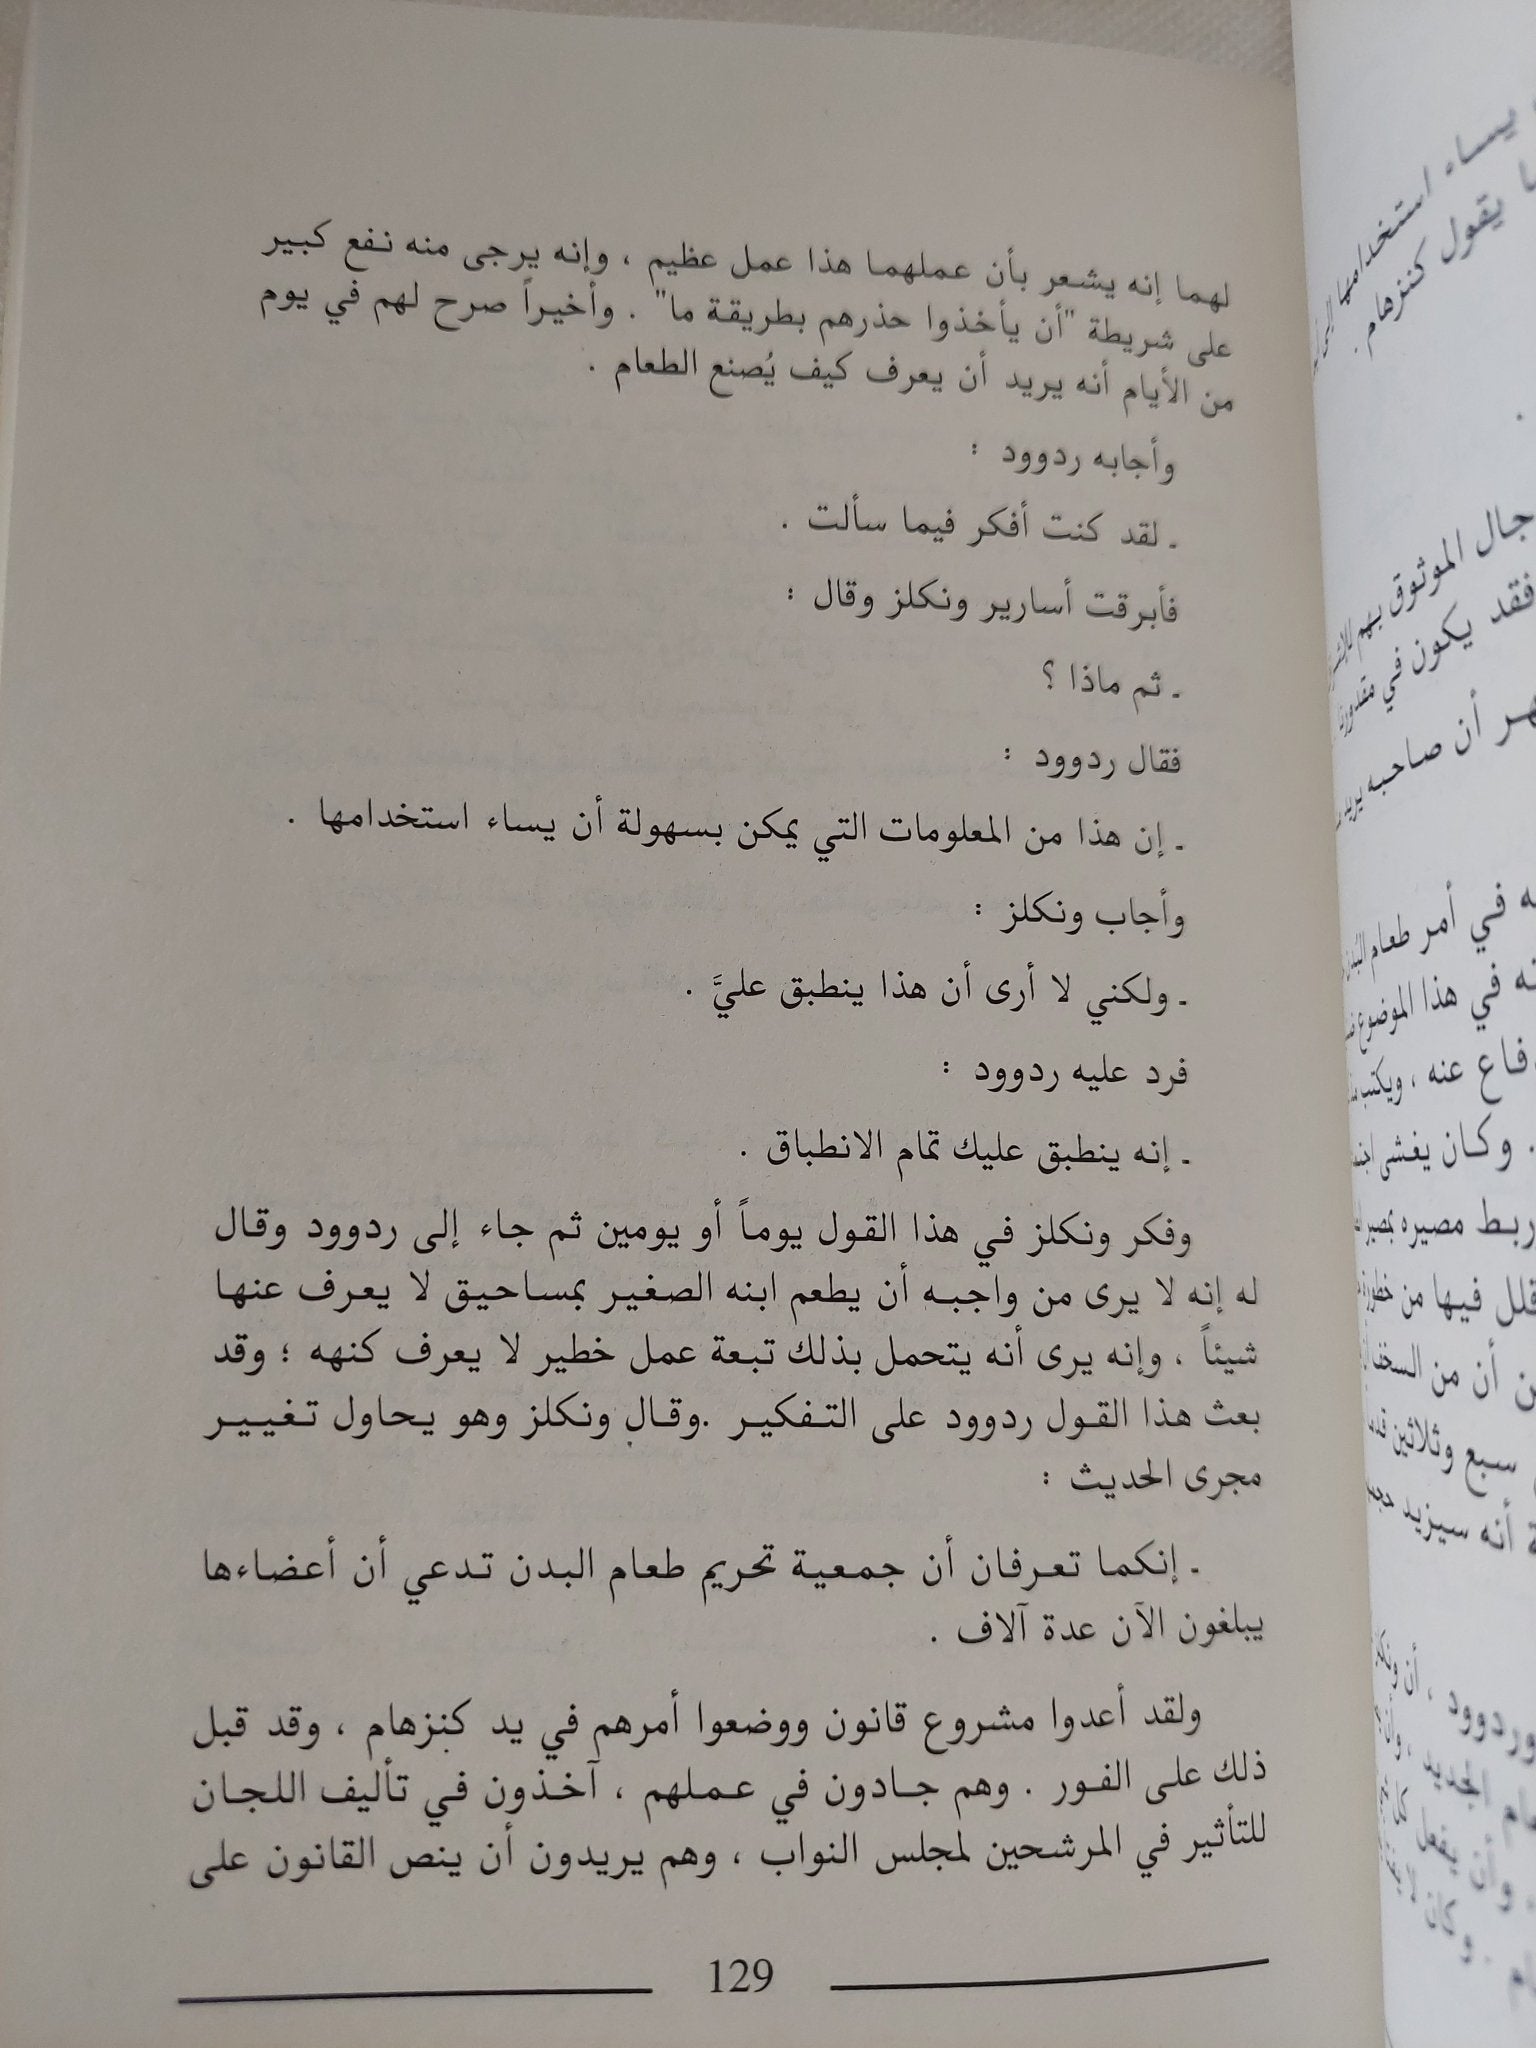 لهما إنه يشعر بأن عملهما هذا عمل عظيم ، وإنه يرجى منه نفع كبير
على شريطة "أن يأخذوا حذرهم بطريقة ما" . وأخيراً صرح لهم في يوم
من الأيام أنه يريد أن يعرف كيف يُصنع الطعام .
وأجابه ردوود :
ـ لقد كنت أفكر فيما سألت .
فأبرقت أسارير ونكلز وقال :
ـ ثم ماذا ؟
فقال ردوود :
ـ إن هذا من المعلومات التي يمكن بسهولة أن يساء استخدامها .
وأجاب ونكلز :
ـ ولكني لا أرى أن هذا ينطبق عليَّ .
فرد عليه ردوود :
ـ إنه ينطبق عليك تمام الانطباق .
وفكر ونكلز في هذا القول يوماً أو يومين ثم جاء إلى ردوود وقال
له إنه لا يرى من واجبه أن يطعم ابنه الصغير بمساحيق لا يعرف عنها
شيئاً ، وإنه يرى أنه يتحمل بذلك تبعة عمل خطير لا يعرف كنهه ؛ وقد
بعث هذا القول ردوود على التفكير .وقال ونكلز وهو يحاول تغيير
مجرى الحديث :
ـ إنكما تعرفان أن جمعية تحريم طعام البدن تدعي أن أعضاءها
يبلغون الآن عدة آلاف .
ولقد أعدوا مشروع قانون ووضعوا أمرهم في يد كنزهام ، وقد قبل
ذلك على الفور . وهم جادون في عملهم ، آخذون في تأليف اللجان
للتأثير في المرشحين لمجلس النواب ، وهم يريدون أن ينص القانون على
129
يساء استخدامها
يقول كنزهام .
الموثوق بهم
فقد يكون في
أن صاحبه
في أمر طعام
في هذا الموضوع
عنه ، ويكتب
. وكان يغشى
ربط مصيره
فيها من
أن من السخف
سبع وثلاثين
أنه سيزيد